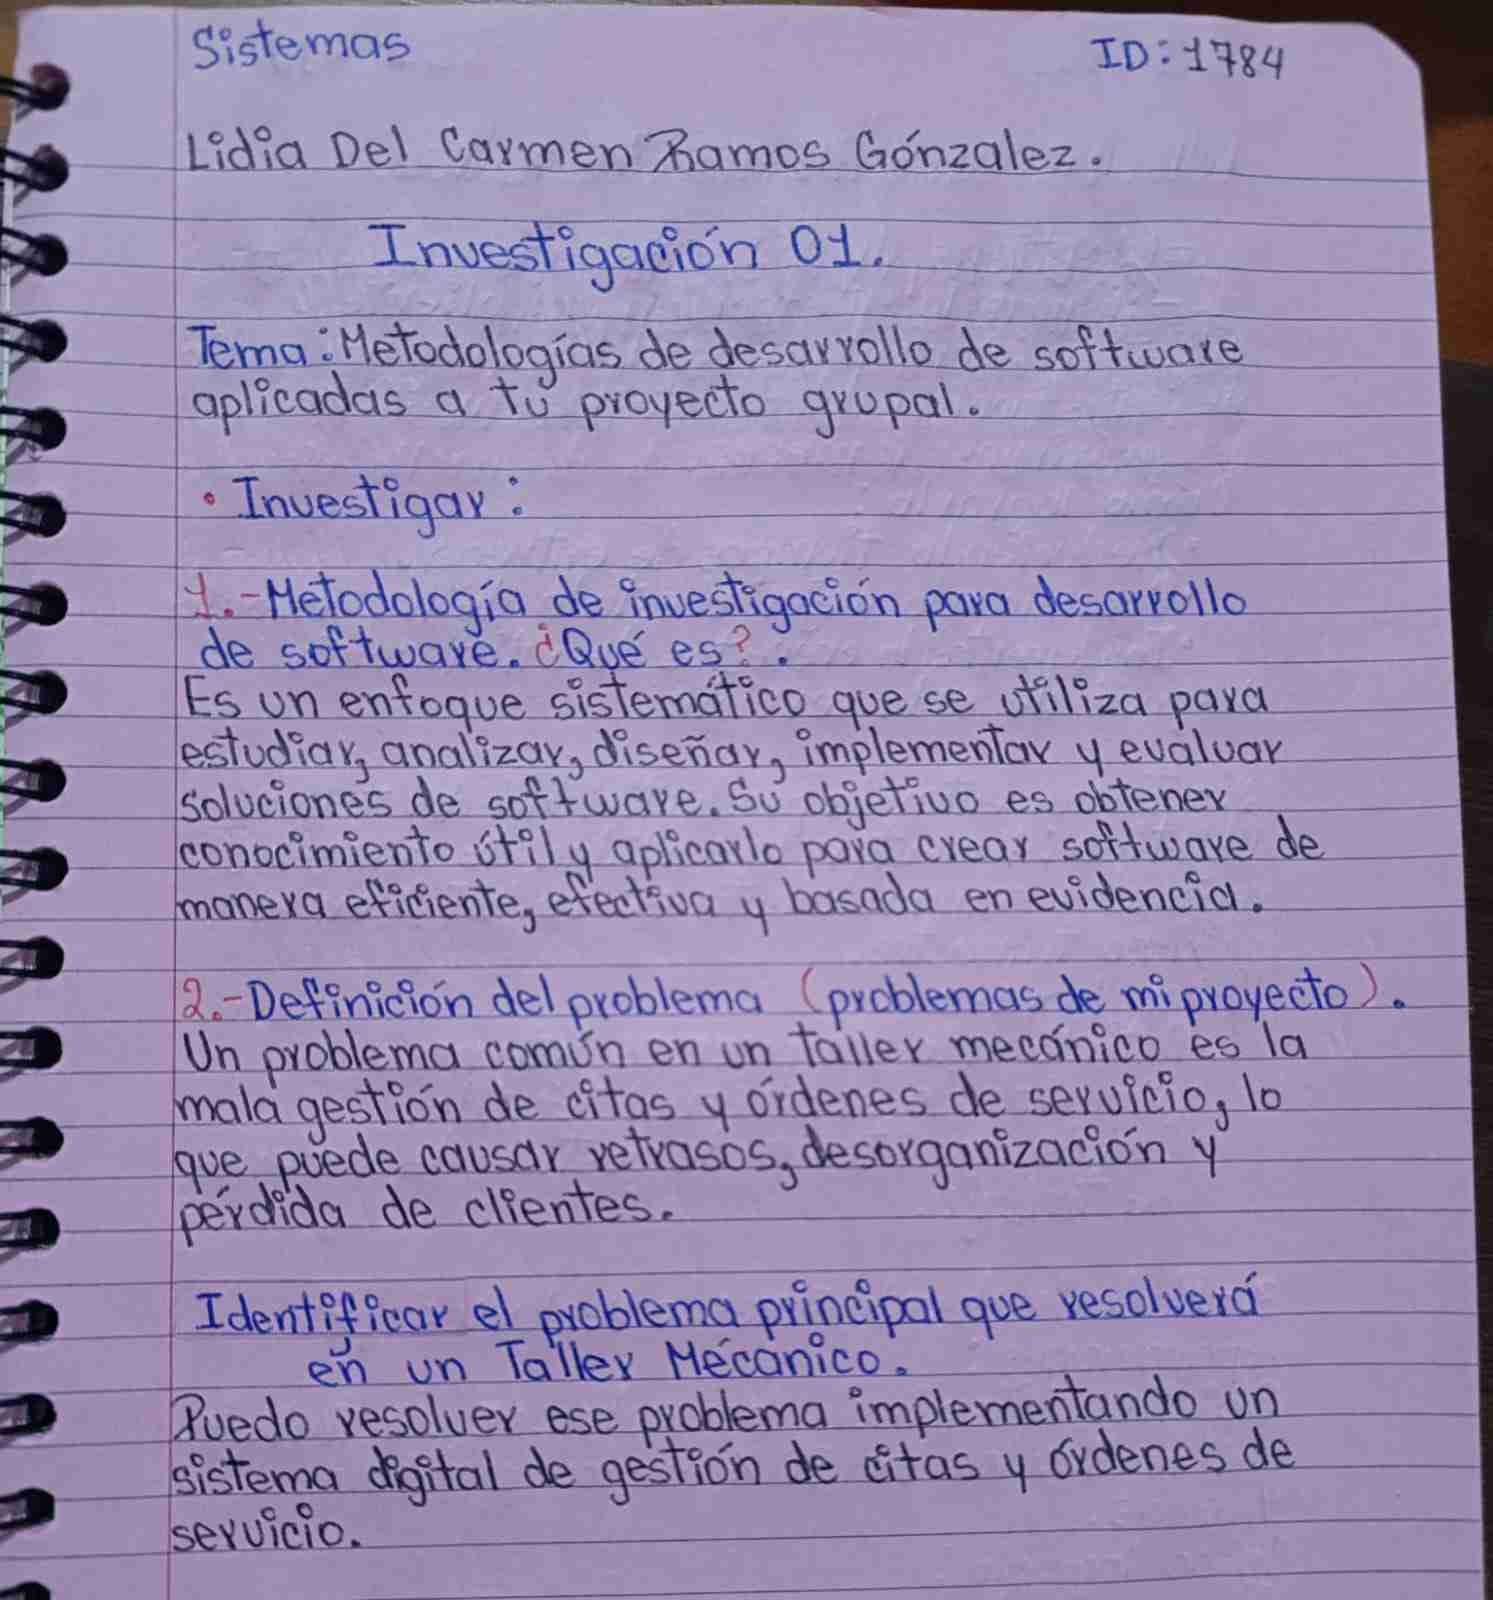 Sistemas
ID: 1784
Lidia Del Carmen Ramos Gónzalez.
Investigación 01.
Tema: Metodologías de desarrollo de software
aplicadas a tu proyecto grupal.
• Investigar:
1.- Metodología de investigación para desarrollo
de software. ¿Qué es?.
Es un enfoque sistemático que se utiliza para
estudiar, analizar, diseñar, implementar y evaluar
soluciones de software. Su objetivo es obtener
conocimiento útil y aplicarlo para crear software de
manera eficiente, efectiva y basada en evidencia.
2.- Definición del problema (problemas de mi proyecto).
Un problema común en un taller mecánico es la
mala gestión de citas y órdenes de servicio, lo
que puede causar retrasos, desorganización y
pérdida de clientes.
Identificar el problema principal que resolverá
en un Taller Mécanico.
Puedo resolver ese problema implementando un
sistema digital de gestión de citas y órdenes de
servicio.